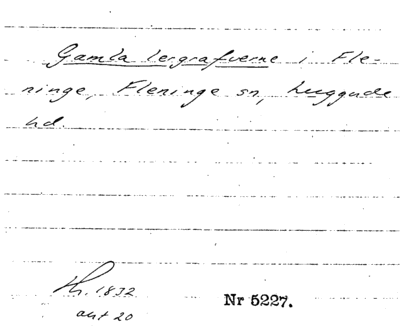 Gamla lergrafverne i Fle-
ninge, Fleninge sn, Luggude
hd.
Th. 1832
akt 20
Nr 5227.